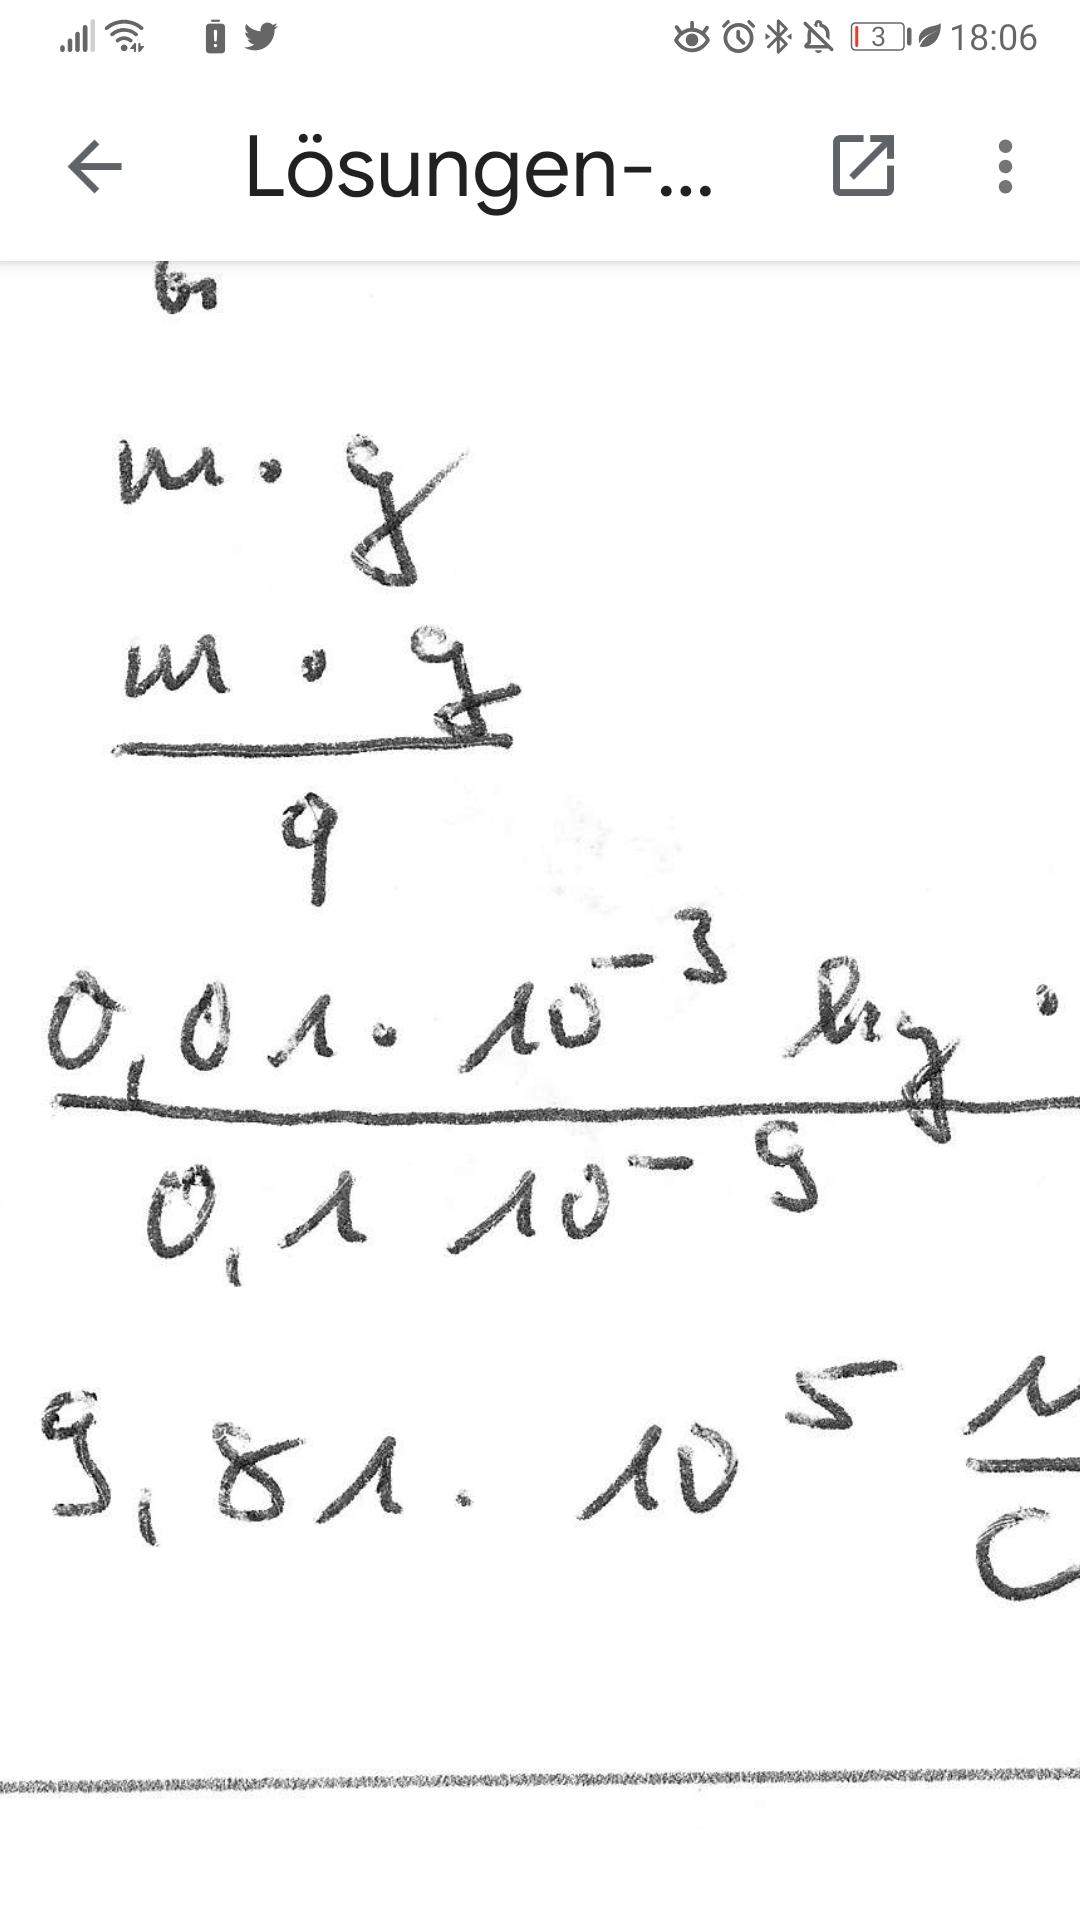 3 18:06
Lösungen-...
m · g
m · g
q
0,01 · 10⁻³ kg ·
0,1 10⁻⁹
9,81 · 10⁵ N
C